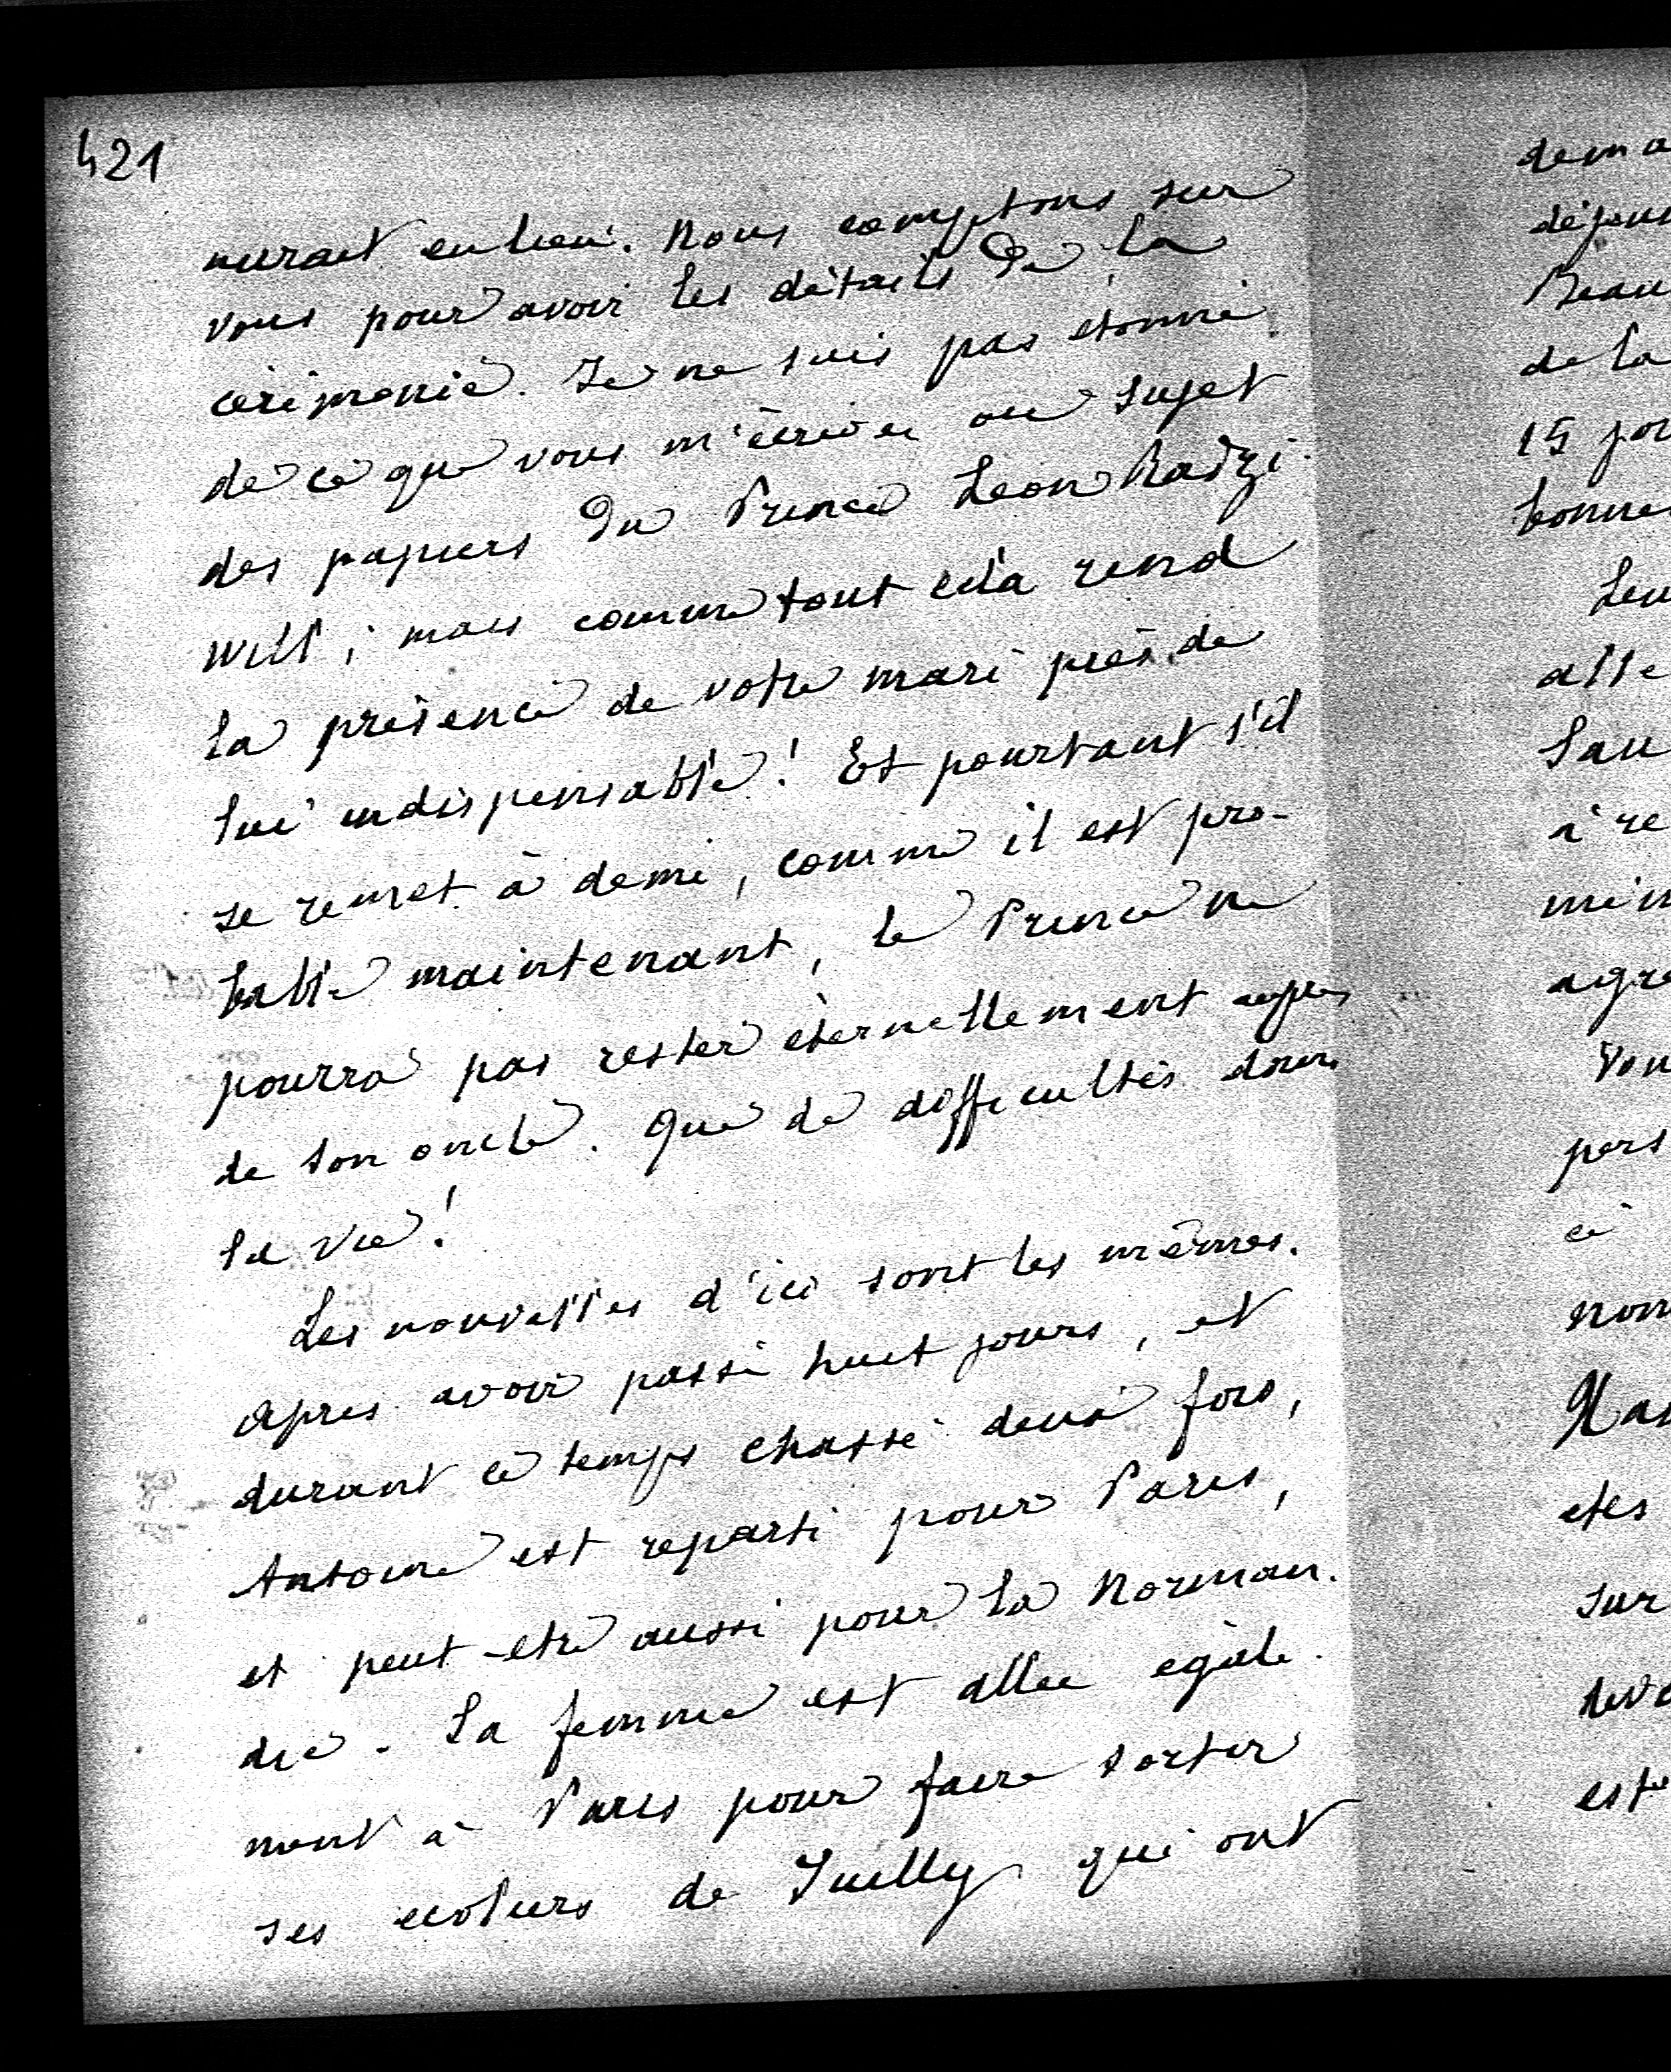 421
aurait eu lieu. Nous comptons sur
vous pour avoir les détails de la
cérémonie. Je ne suis pas étonné
de ce que vous m'écrivez au sujet
des papiers du Prince Léon Radzi-
will; mais comme tout cela rend
la présence de votre mari près de
lui indispensable! Et pourtant s'il
se remet à demi, comme il est pro-
bable maintenant, le Prince ne
pourra pas rester éternellement auprès
de son oncle. Que de difficultés dans
la vie!
Les nouvelles d'ici sont les mêmes.
Après avoir passé huit jours, et
durant ce temps chassé deux fois,
Antoine est reparti pour Paris,
et peut-etre aussi pour la Norman-
die. Sa femme est allée égale-
ment à Paris pour faire sortir
ses ecoliers de Juilly qui ont
dema
déjeun
Beau
de la
15 jou
bonne
Leu
alle
Sau
à re
min
agré
Vou
pers
ce
nom
etes
sur
deve
este